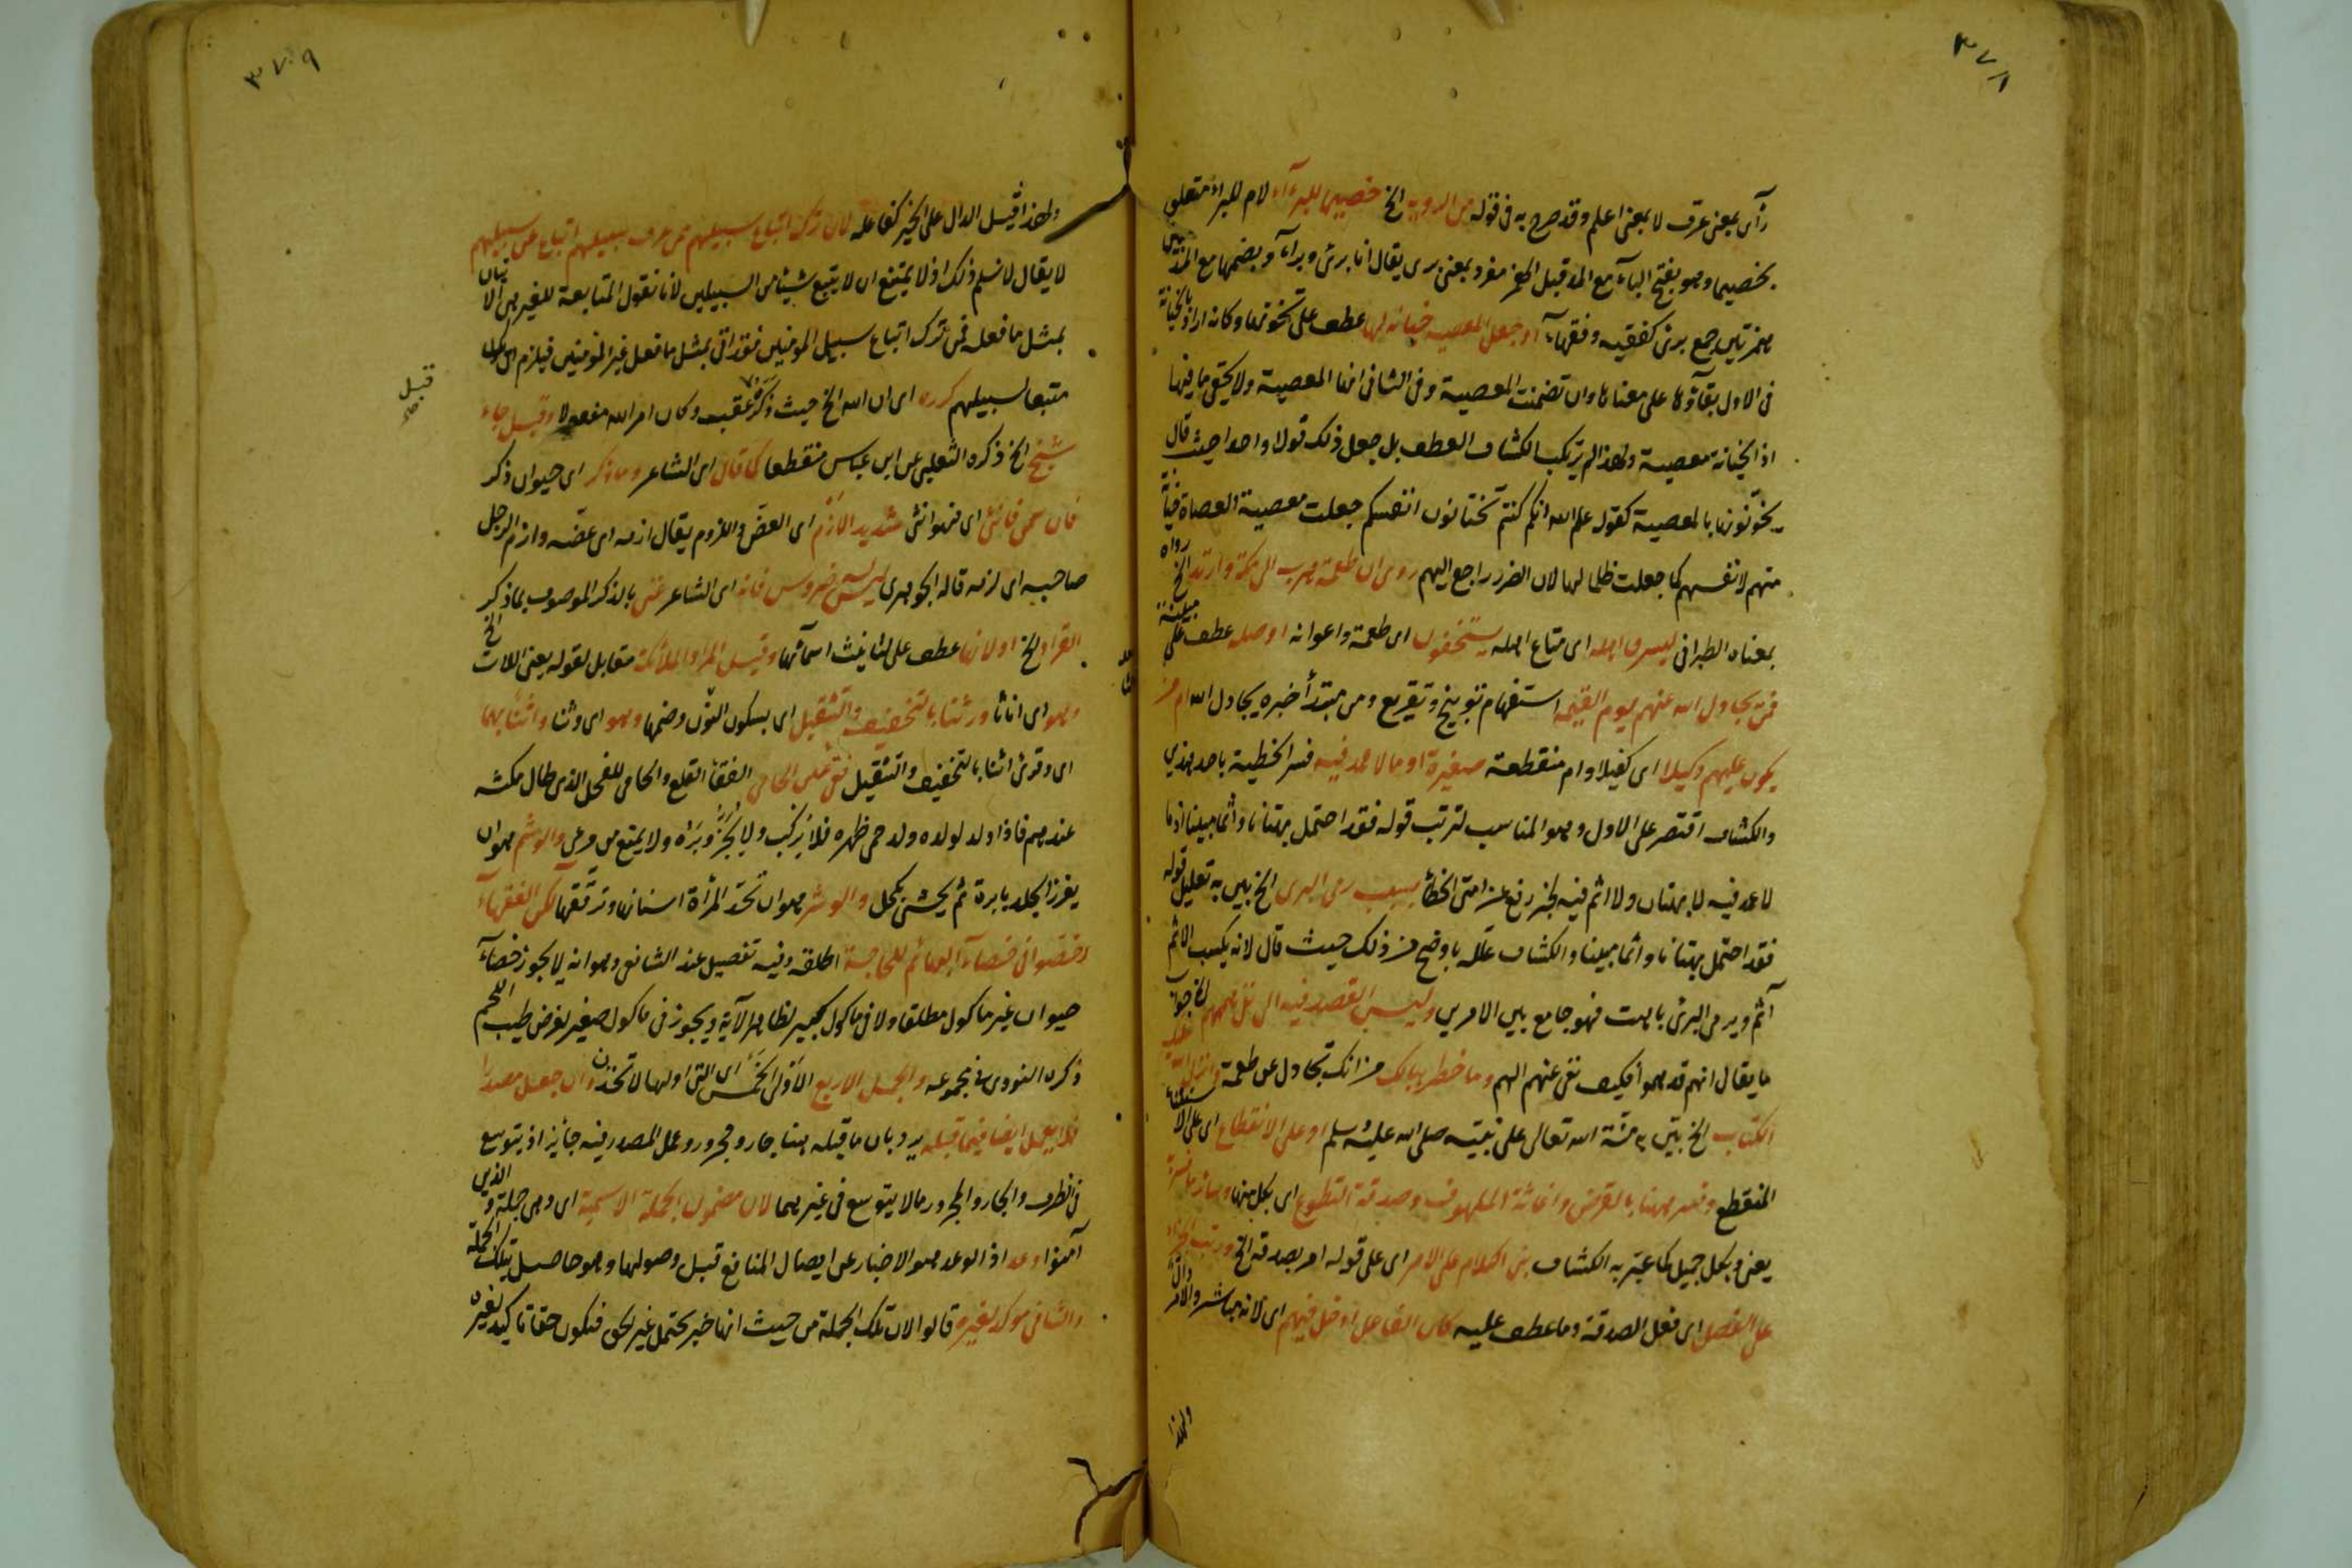 ٣٧٨
رأى بمعنى عرف لا بمعنى اعلم وقد صرح به فى قوله من الروية الخ خصيما للبرءآء لام للبراء متعلق
بخصيما وهو بفتح الباء مع المد قبل الهمز مفرد بمعنى برى يقال انا برئ وبراء وبضمها مع المد بين
همزتين جمع برئ كفقيه وفقهاء او جعل المعصية خيانة لها عطف على تخونها وكانه اراد بالخيانة
فى الاول بقاؤها على معناها وان تضمنت المعصية وفى الثانى انها المعصية ولا يخفى ما فيها
اذ الخيانة معصية ولهذا لم يرتكب الكشاف العطف بل جعل ذلك قولا واحدا حيث قال
يخونونها بالمعصية كقوله علم الله انكم كنتم تختانون انفسكم جعلت معصية العصاة خيانة
منهم لانفسهم كما جعلت ظلما لها لان الضرر راجع اليهم روى ان طعمة هرب الى مكة وارتد الخ رواه
بمعناه الطبرانى ليسرق اهله اى متاع اهله يستخفون اى طعمة واعوانه او صله عطف على مبينة
فمن يجادل الله عنهم يوم القيمة استفهام توبيخ وتقريع ومن مبتدأ خبره يجادل الله ام من
يكون عليهم وكيلا اى كفيلا وام منقطعة صغيرة او ما لا عمد فيه فسر الخطية باحد هذين
والكشاف اقتصر على الاول وهو المناسب لترتب قوله فقد احتمل بهتانا واثما مبينا اذ ما
لا عمد فيه لا بهتان ولا اثم فيه لخبر رفع عن امتى الخطأ بسبب رمى البرى الخ بين به تعليل قوله
فقد احتمل بهتانا واثما مبينا والكشاف علله باوضح من ذلك حيث قال لانه بكسب الاثم
آثم ويرمى البرئ باهت فهو جامع بين الامرين وليس القصد فيه الى نفى همهم الخ جواب
ما يقال انهم قد هموا فكيف نفى عنهم الهم وما خطر ببالك من انك تجادل عن طعمة
الكتاب الخ بين منة الله تعالى على نبيه صلى الله عليه وسلم او على الانقطاع اى على الاستثناء
المنقطع وفسر ههنا بالقرض واغاثة الملهوف وصدقة التطوع اى بكل منها وسائر ما فسر به
يعنى وبكل جميل كما عبر به الكشاف بنى الكلام على الامر اى على قوله امر بصدقة الخ ورتب الجزاء
على الفعل اى فعل الصدقة وما عطف عليه كان الفاعل ادخل فيهم اى لانه مباشر والامر دال
ولهذا
٣٧٩
ولهذا قيل الدال على الخير كفاعله لان ترك اتباع سبيلهم ممن عرف سبيلهم اتباع غير سبيلهم
لا يقال لا نسلم ذلك اذ لا يمتنع ان لا يتبع شيئا من السبيلين لانا نقول المتابعة للغير هى الاتيان
بمثل ما فعله فمن ترك اتباع سبيل المومنين فقد اتى بمثل ما فعل غير المومنين فيلزم ان يكون
متبعا لسبيلهم كرره اى ان الله الخ حيث ذكره عقب وكان امر الله مفعولا وقيل جاء
شيخ الخ ذكره الثعلبى عن ابن عباس منقطعا كما قال اى الشاعر وما ذكر اى حيوان ذكر
فان سمى فانثى اى فهو انثى شديد الازم اى العض واللزوم يقال ازمه اى عضه وازم الرجل
صاحبه اى لزمه قاله الجوهرى ليس بذى ضروس فانه اى الشاعر عنى بالذكر الموصوف بما ذكر
القراد الخ او لانها عطف على لتأنيث اسمائها وقيل المراد الملائكة مقابل لقوله يعنى اللات الخ
وهو اى اناثا ورثنا بالتخفيف والتثقيل اى بسكون النون وضمها وهو اى وثنا واثنا بهما
اى وقرئ اثنا بالتخفيف والتثقيل فقئ عين الحامى الفقأ القلع والحامى للفحل الذى طال مكثه
عندهم فاذا ولد لولده ولد حمى ظهره فلا يركب ولا يجز وبره ولا يمنع من مرعى والوشم هو ان
يغرز الجلد بابرة ثم يحشى بكحل والوشر هو ان تحد المرأة اسنانها وترققها لكن الفقهاء
رخصوا فى خصاء البهائم للحاجة اطلقه وفيه تفصيل عند الشافعى وهو انه لا يجوز خصاء
حيوان غير ماكول مطلقا ولا فى ماكول كبير لظاهر الآية ويجوز فى ماكول صغير لغرض طيب اللحم
ذكره النووى فى مجموعه والجمل الاربع الاولى الخمس اى التى اولها لاتخذن وان جعل مصدرا
فلا يعمل ايضا فيما قبله يرد بان ما قبله هنا جار ومجرور وعمل المصدر فيه جائز اذ يتوسع
فى الظرف والجار والمجرور ما لا يتوسع فى غيرهما لان مضمون الجملة الاسمية اى وهى جملة والذين
آمنوا وعد اذ الوعد هو الاخبار عن ايصال المنافع قبل وصولها وهو حاصل بتلك الجملة
والثانى موكد لغيره قالوا لان تلك الجملة من حيث انها خبر يحتمل غير الحق فتكون حقا تاكيد لغيره
قبل